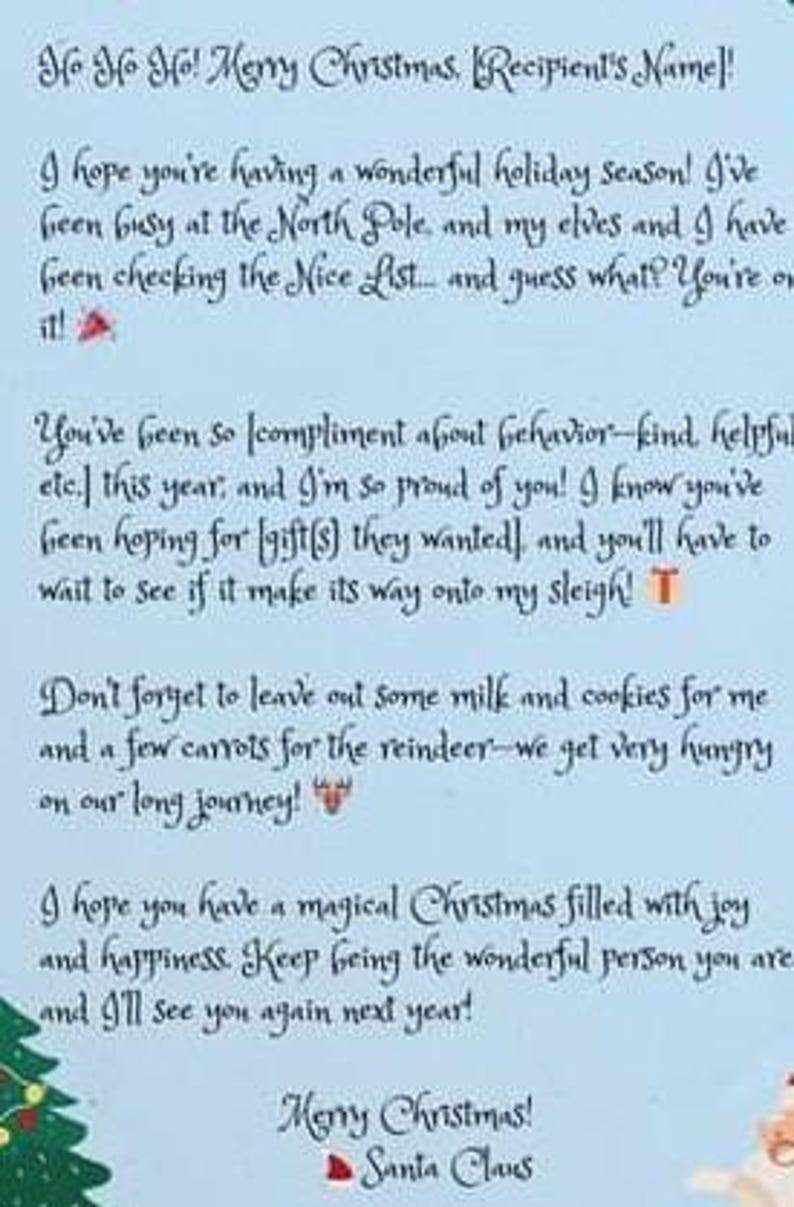 Ho Ho Ho! Merry Christmas, [Recipient's Name]!
I hope you're having a wonderful holiday season! I've
been busy at the North Pole, and my elves and I have
been checking the Nice List... and guess what? You're on
it! 🎉
You've been so [compliment about behavior—kind, helpful
etc.] this year, and I'm so proud of you! I know you've
been hoping for [gift(s) they wanted], and you'll have to
wait to see if it make its way onto my sleigh! 🎁
Don't forget to leave out some milk and cookies for me
and a few carrots for the reindeer—we get very hungry
on our long journey! 🦌
I hope you have a magical Christmas filled with joy
and happiness. Keep being the wonderful person you are
and I'll see you again next year!
Merry Christmas!
🎅 Santa Claus